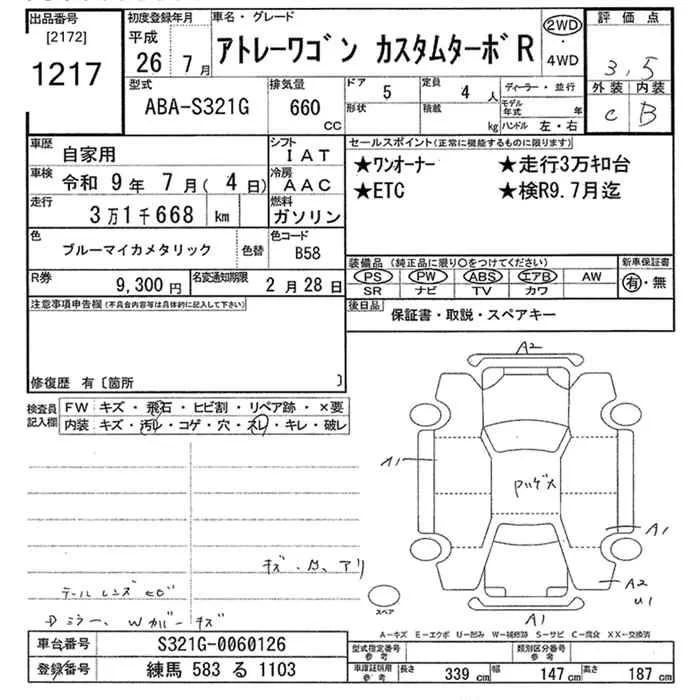 出品番号
[2172]
1217
初度登録年月
平成
26 7月
車名・グレード
アトレーワゴン カスタムターボR
2WD
・
4WD
評価点
3.5
外装 内装
C B
型式
ABA-S321G
排気量
660
CC
ドア 5
形状
定員 4 人
積載 kg
ディーラー・並行
モデル年式 年
ハンドル 左・右
車歴
自家用
シフト
IAT
車検
令和 9年 7月( 4日)
冷房
AAC
走行
3万1千668 km
燃料
ガソリン
色
ブルーマイカメタリック
色替
色コード
B58
R券
9,300円
名変通知期限
2月28日
セールスポイント(正常に機能するものに限ります)
★ワンオーナー ★走行3万キロ台
★ETC ★検R9.7月迄
装備品(純正品に限り○をつけてください)
PS PW ABS エアB AW
SR ナビ TV カワ
新車保証書
有・無
後日品
保証書・取説・スペアキー
注意事項申告欄(不具合内容等は具体的に記入して下さい)
修復歴 有〔箇所 〕
検査員
記入欄
FW キズ・飛石・ヒビ割・リペア跡・×要
内装 キズ・汚レ・コゲ・穴・スレ・キレ・破レ
A2
A1
A1
A2
U1
A1
スペア
テールレンズ
ミラー、Wカバーキズ
A-キズ E-エクボ U-凹み W-補修跡 S-サビ C-腐食 XX-交換済
車台番号
S321G-0060126
登録番号
練馬 583 る 1103
型式指定番号
参考
類別区分番号
参考
車庫証明用
参考
長さ 339 cm
幅 147 cm
高さ 187 cm